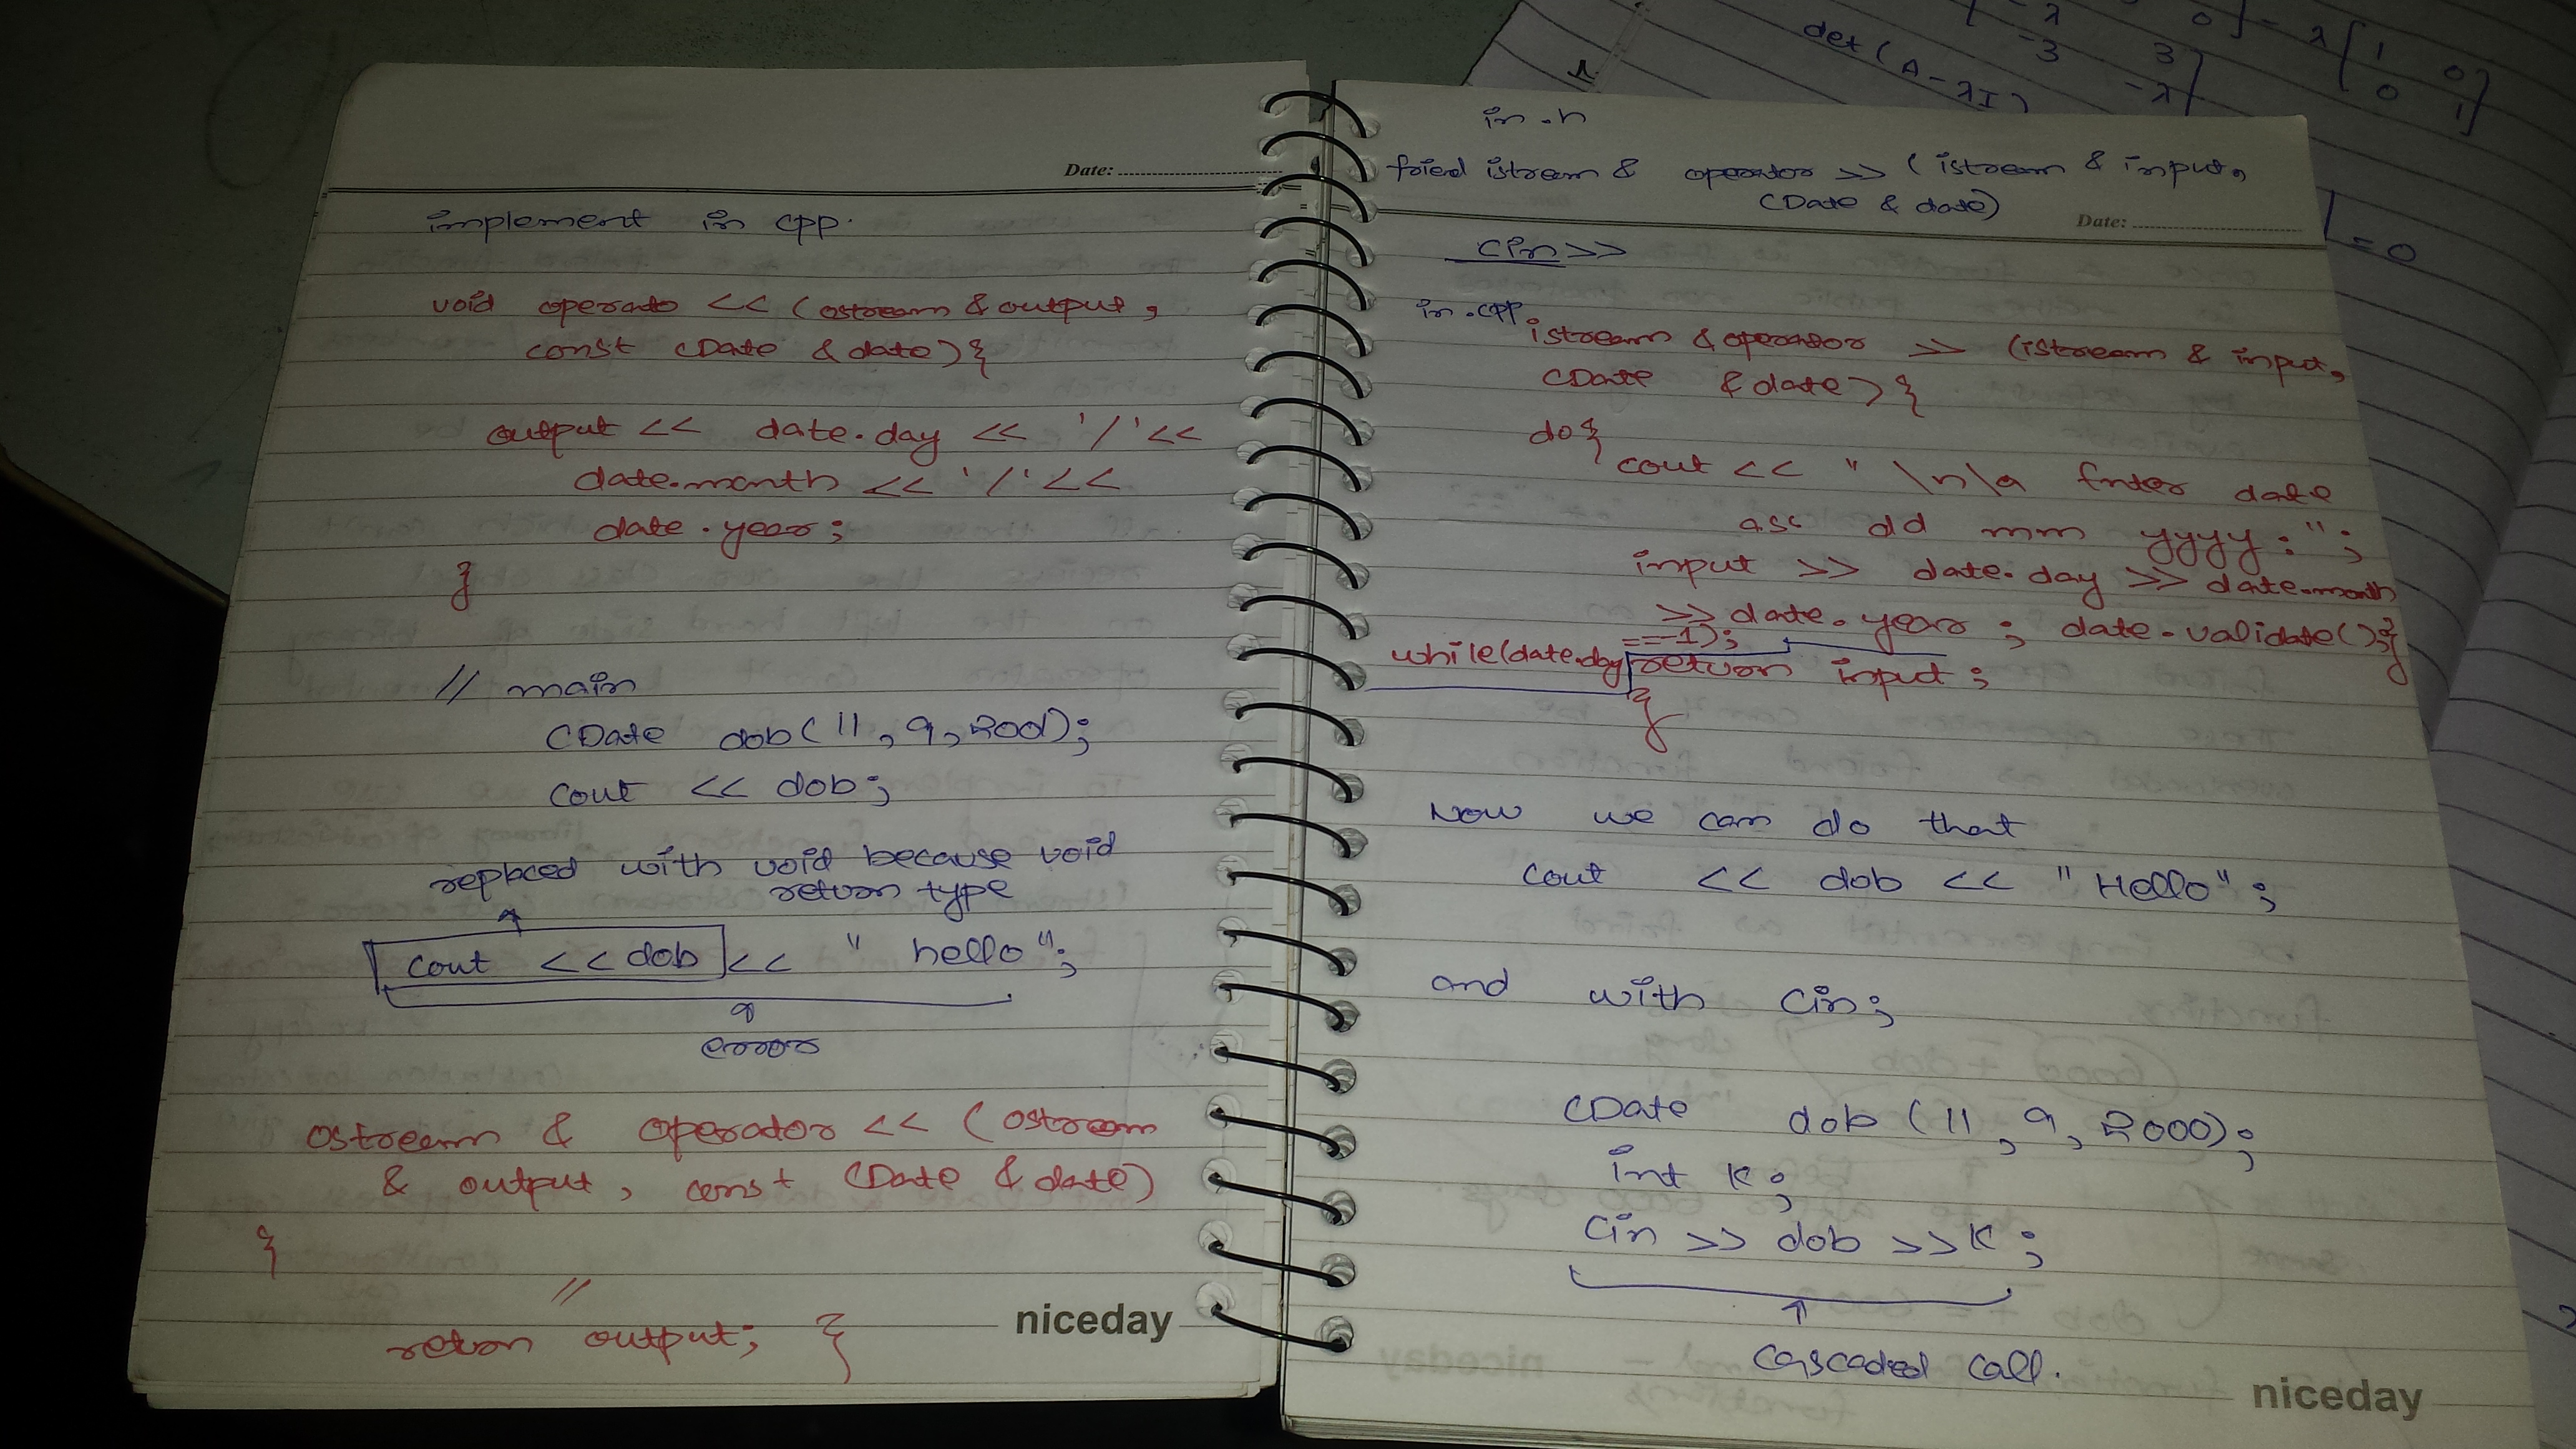 Date:
implement in cpp.
void operato << (ostream & output,
const CDate & date) {
output << date.day << '/' <<
date.month << '/' <<
date.year;
}
// main
CDate dob(11, 9, 200);
cout << dob;
replaced with void because void
return type
cout << dob << " hello";
error
ostream & operator << (ostream
& output, const CDate & date)
{
//
retun output; }
niceday
in .h
friend istream & operator >> (istream & input,
CDate & date)
Date:
cin >>
in .cpp
istream & operator >> (istream & input,
CDate & date) {
do {
cout << " \n\a Enter date
as dd mm yyyy : ";
input >> date.day >> date.month
>> date.year ; date.validate();}
while(date.day == -1);
return input ;
}
Now we can do that
cout << dob << "Hello";
and with cin;
CDate dob (11, 9, 2000);
int K;
cin >> dob >> K;
cascaded call.
niceday
det (A - λI)
-λ 0
-3 3
-λ
= λ
1 0
0 1
= 0